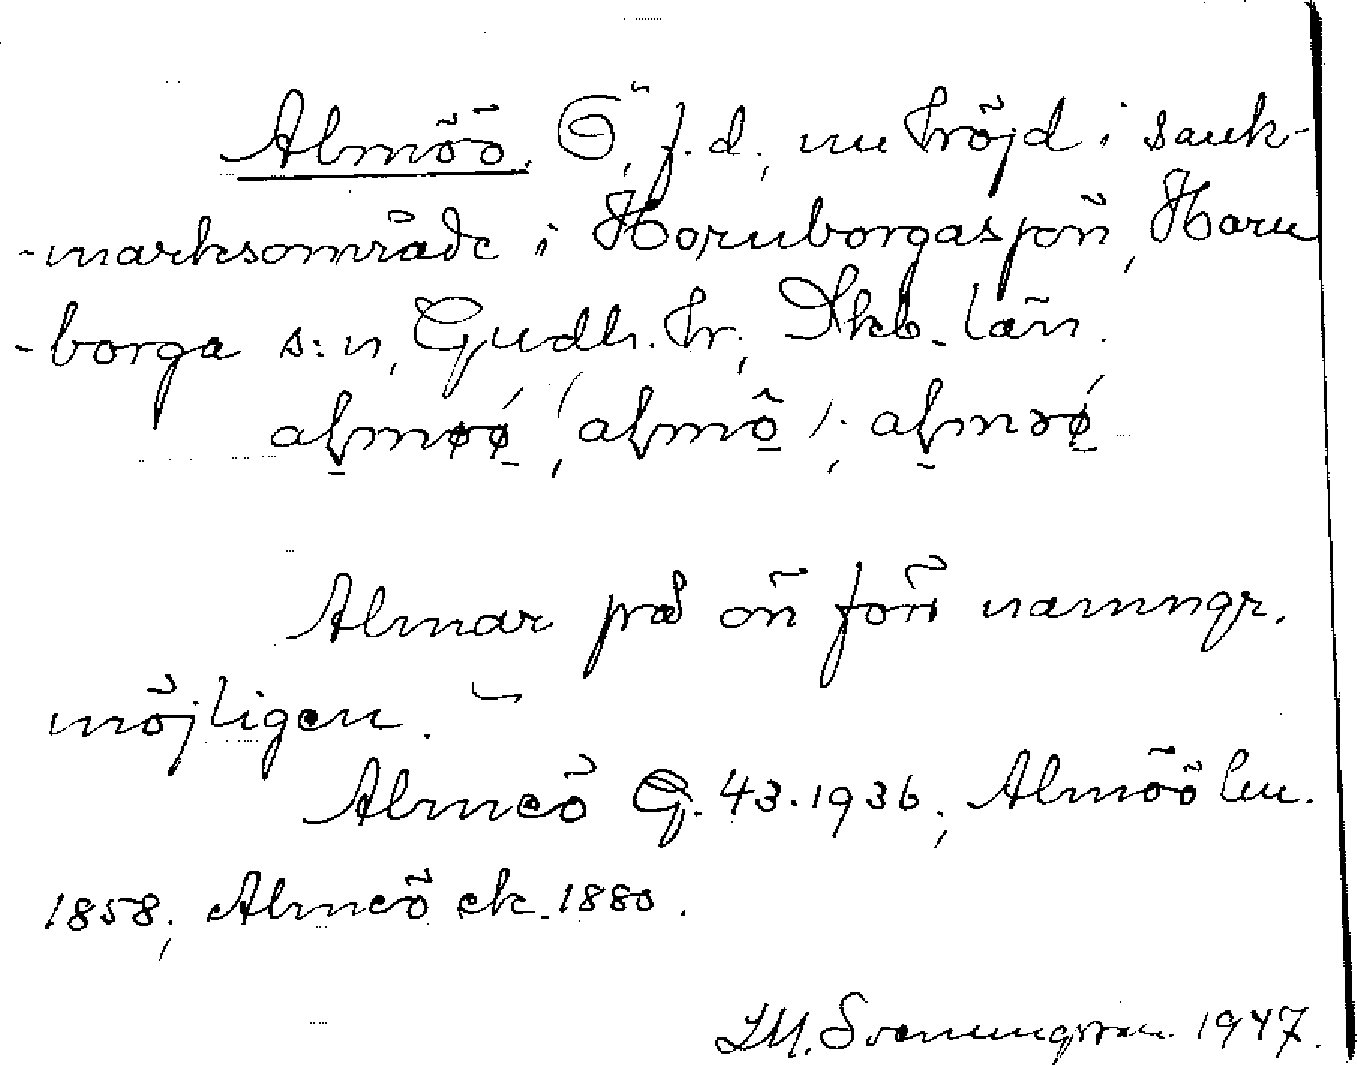 Almöö, Ö, f. d., nu höjd i sank-
-marksområde i Hornborgasjön, Horn
-borga s:n, Gudh. hr, Skb. län.
Almar på ön förr namngr.
möjligen.
Almeö G. 43.1936; Almöö lm.
1858; Almeö ek. 1880.
I.M. Svenungsson 1947.